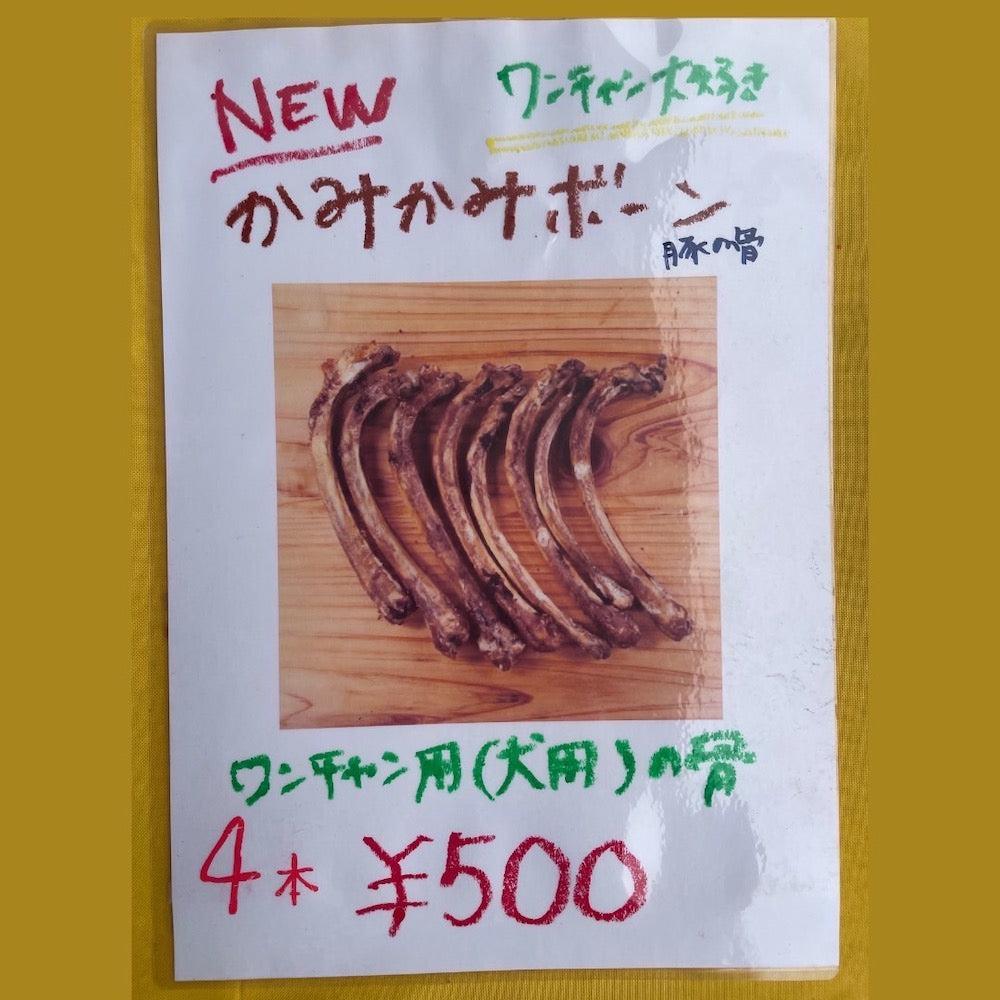 NEW
ワンチャン大好き
かみかみボーン
豚の骨
ワンチャン用(犬用)の骨
4本 ¥500